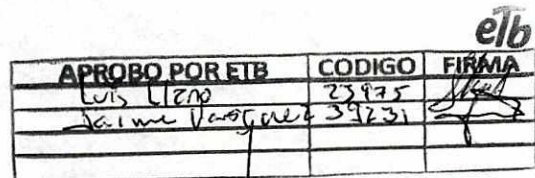 etb
APROBO POR ETB CODIGO FIRMA
Luis 23975
Jaime Vasquez 39231